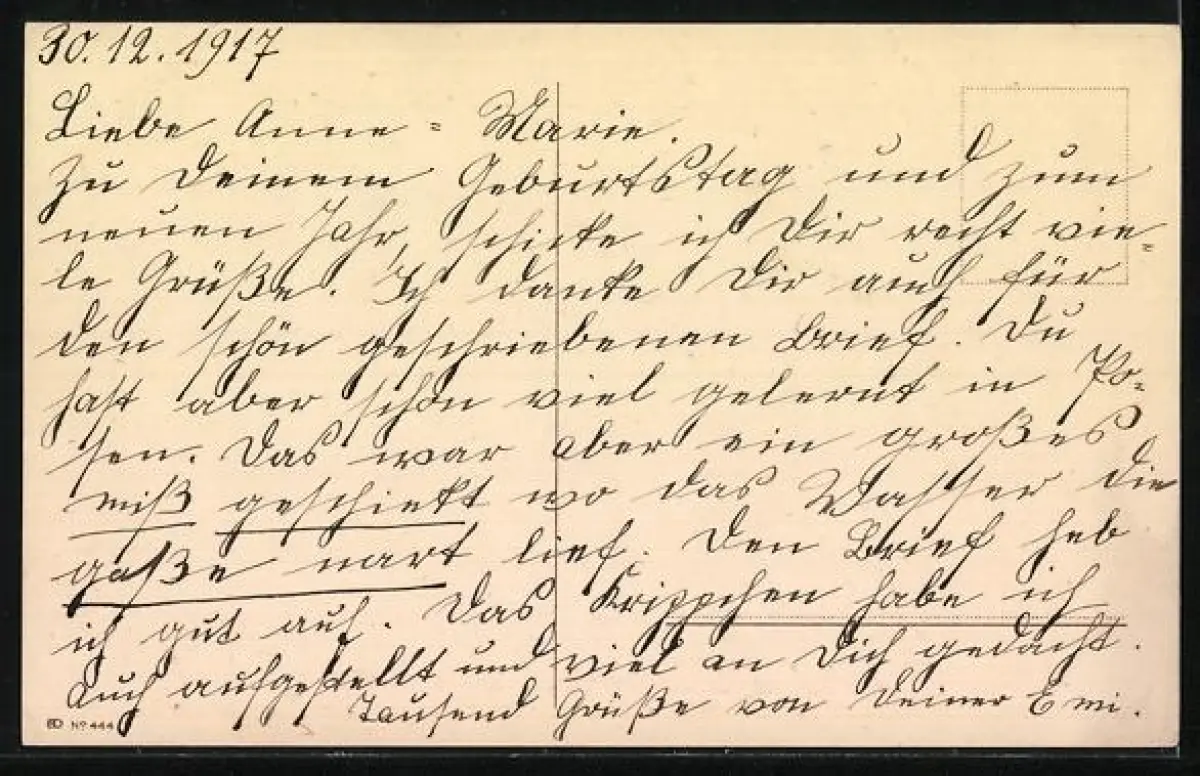 30.12.1917
Liebe Anne = Marie.
Zu Deinem Geburtstag und zum
neuen Jahr, schicke ich Dir recht vie=
le Grüße. Ich danke Dir auch für
den schön geschriebenen Brief. Du
hast aber schon viel gelernt in Po=
sen. Das war aber ein großes
miß geschickt wo das Wasser die
gaße nart lief. Den Brief heb
ich gut auf. Das Krippchen habe ich
auch aufgestellt und viel an Dich gedacht.
Tausend Grüße von Deiner Emi.
No 444